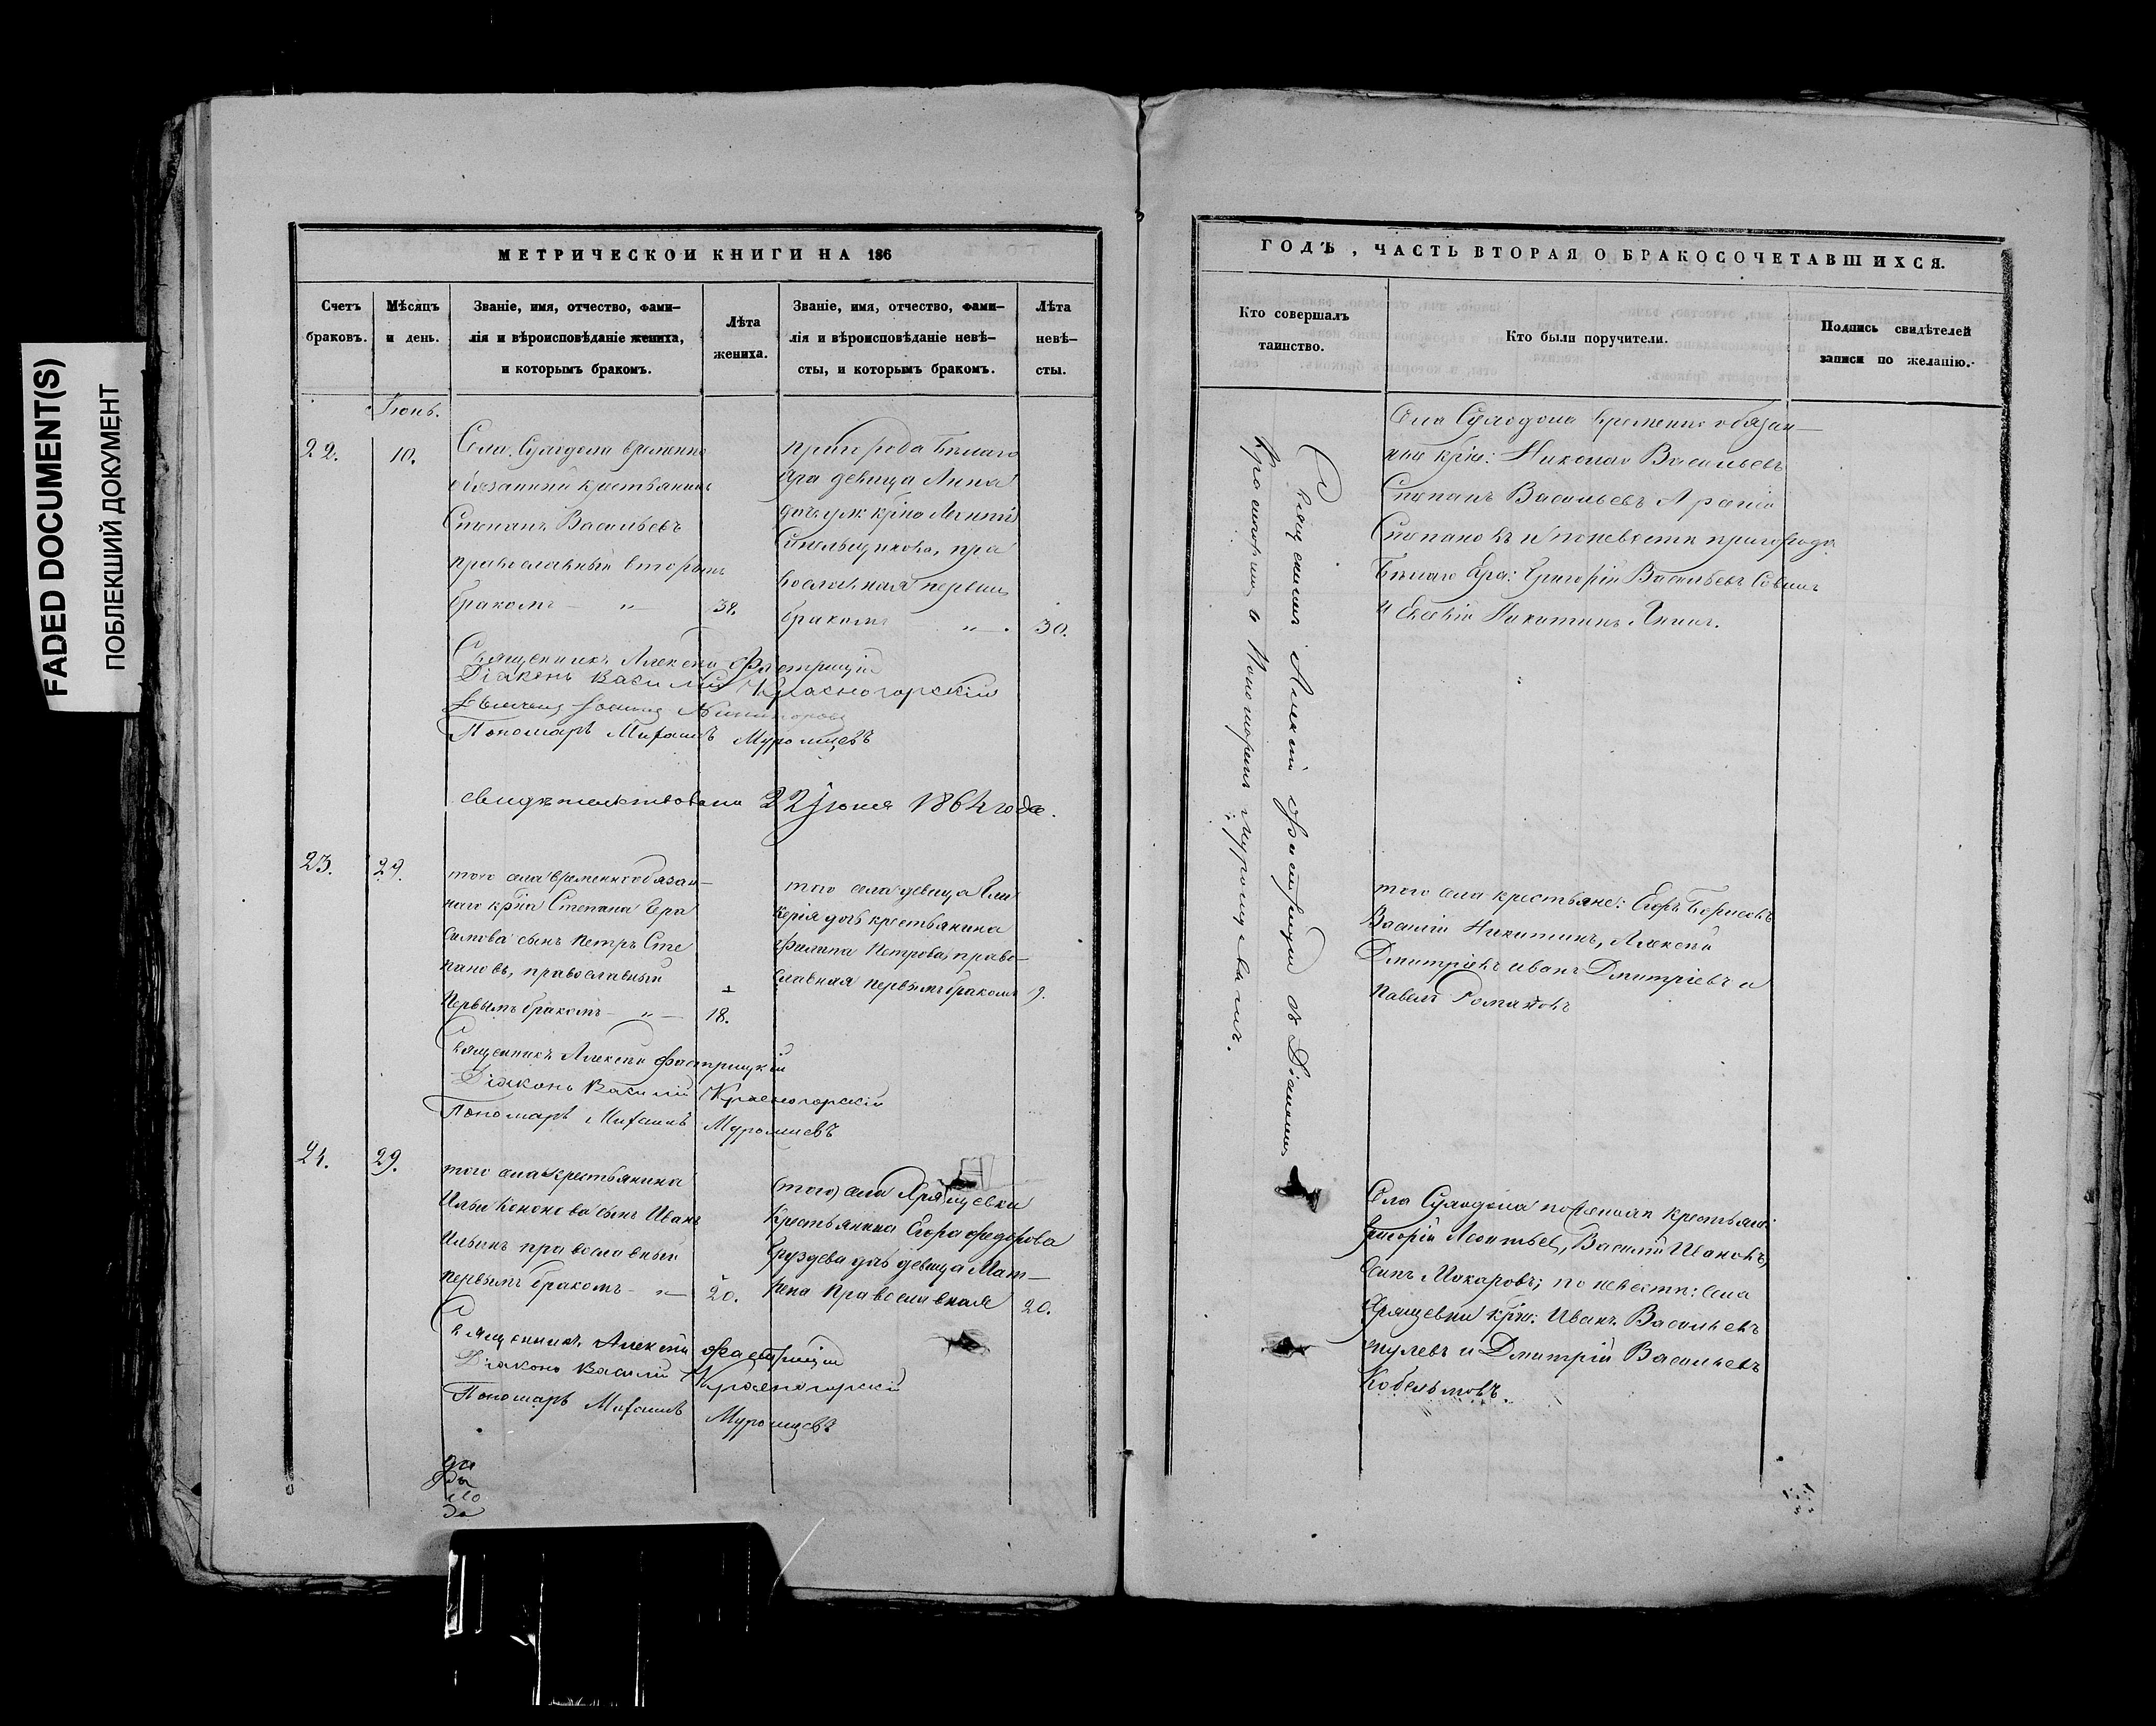 FADED DOCUMENT(S)
ПОБЛЕКШИЙ ДОКУМЕНТ
МЕТРИЧЕСКОИ КНИГИ НА 186
Счетъ браковъ.
Мѣсяцъ и день.
Званіе, имя, отчество, фами-
лія и вѣроисповѣданіе жениха,
и которымъ бракомъ.
Лѣта жениха.
Званіе, имя, отчество, фами-
лія и вѣроисповѣданіе невѣ-
сты, и которымъ бракомъ.
Лѣта невѣ-
сты.
Іюнь.
22.
10.
Села Суходола временно
обязанный крестьянинъ
Степанъ Васильевъ
православный вторымъ
бракомъ — „ —
38.
пригорода Бѣлаго
Яра девица Анна
православная первымъ
бракомъ „ —.
30.
Священникъ Алексѣй
Діаконъ Василій Красногорскій
Пономарь Михаилъ Муромцевъ
свидѣтельствовано 22 Іюня 1864 года.
23.
29.
того села временнообязан-
наго крна Степана Гера
симова сынъ Петръ Сте
пановъ, православный
первымъ бракомъ — „ —
18.
того села девица Гли
керія дочь крестьянина
Филипа Петрова, право-
славная первымъ бракомъ
19.
Священникъ Алексѣй
Діаконъ Василій Красногорскій
Пономарь Михаилъ Муромцевъ
24.
29.
того села крестьянина
Ильи Кононова сынъ Иванъ
Ильинъ православный
первымъ бракомъ — „ —
20.
(того) села Хрящевки
Крестьянина Егора Федорова
Груздева дочь девица Мат-
рена Православная
20.
Священникъ Алексѣй
Діаконъ Василій Красногорскій
Пономарь Михаилъ Муромцевъ
ГОДЪ, ЧАСТЬ ВТОРАЯ О БРАКОСОЧЕТАВШИХСЯ.
Кто совершалъ
таинство.
Кто были поручители.
Подпись свидѣтелей
записи по желанію.
Священникъ Алексій съ Діакономъ
Красногорскимъ и Пономоремъ Муромцевымъ.
Села Суходола временно обязан-
ные крне: Николай Васильевъ
Степанъ Васильевъ
Степановъ и по невесте пригорода
Бѣлаго Яра: Григорій Васильевъ
и Евсевій Никитинъ
того села крестьяне: Егоръ Борисовъ
Василій Никитинъ, Алексѣй
Дмитріевъ Иванъ Дмитріевъ и
Павелъ Романовъ
Села Суходола по женихе крестьяне
Григорій Леонтьевъ, Василій Ивановъ,
Осипъ Макаровъ; по невестѣ: села
Хрящевки крне: Иванъ Васильевъ
и Дмитрій Васильевъ